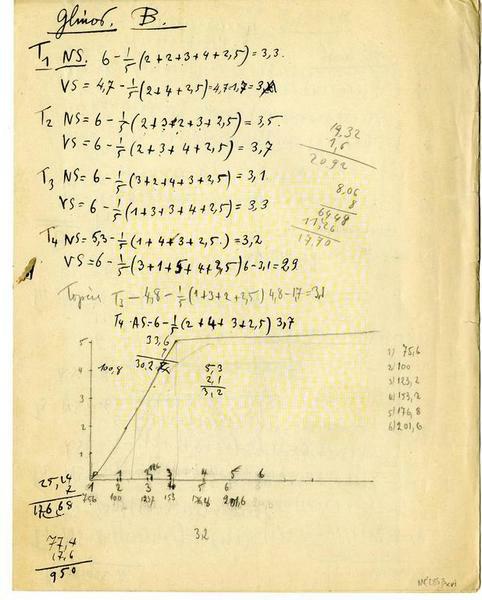 Glinos. B.
T1 NS. 6 - 1/5 (2+2+3+4+2,5) = 3,3.
VS = 4,7 - 1/5 (2+4+2,5) = 4,7-1,7 =
T2 NS = 6 - 1/5 (2+3+2+3+2,5) = 3,5.
VS = 6 - 1/5 (2+3+4+2,5) = 3,7
19,32
1,6
20,92
T3 NS = 6 - 1/5 (3+2+4+3+2,5) = 3,1.
VS = 6 - 1/5 (1+3+3+4+2,5) = 3,3
8,06
8
64,48
11,26
17,90
T4 NS = 5,3 - 1/5 (1+4+3+2,5.) = 3,2
VS = 6 - 1/5 (3+1+5+4+2,5) 6-3,1 = 2,9
T3 - 4,8 - 1/5 (1+3+2+2,5) 4,8-1,7 = 3,1
T4 AS = 6 - 1/5 (2+4+3+2,5) 3,7
33,6
30,2
100,8
5,3
2,1
3,2
5
4
3
2
1
1) 75,6
2) 100
3) 123,2
4) 153,2
5) 176,8
6) 201,6
1 2 3 4 5 6
756 100 153 201,6
25,24
7
176,68
32
77,4
17,6
950